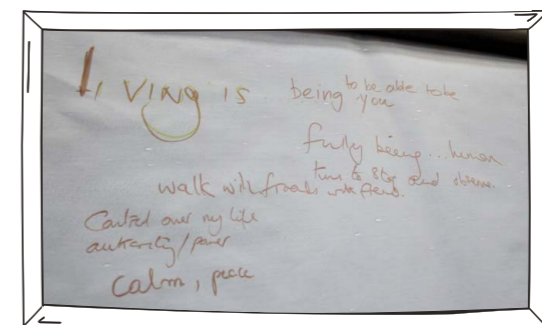 LIVING IS being to be able to be
you
fully being... human
time to stop and observe.
walk with friends with friends.
Control over my life
authority/power
calm, peace